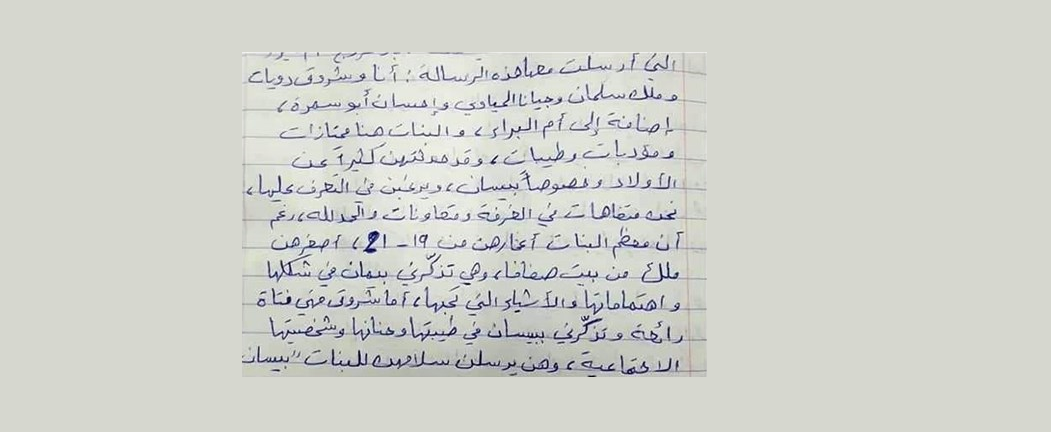 التي أرسلت معها هذه الرسالة: أنا وشروق دويات
وملك سلمان وجيانا الحيادي وإحسان أبو سمرة،
إضافة إلى أم البراء، والبنات هنا ممتازات
ومؤدبات وطيبات، وقد حدثتهن كثيراً عن
الأولاد وخصوصاً بيسان، ويرغبن في التعرف عليها،
نحن متفاهمات في الغرفة ومتعاونات والحمد لله، رغم
أن معظم البنات أعمارهن من ١٩ - 21، أصغرهن
ملك من بيت صفافا، وهي تذكّرني بيمان في شكلها
واهتماماتها والأشياء التي تحبها، أما شروق فهي فتاة
رائعة وتذكّرني ببيسان في طيبتها وحنانها وشخصيتها
الاجتماعية، وهن يرسلن سلامهن للبنات "بيسان